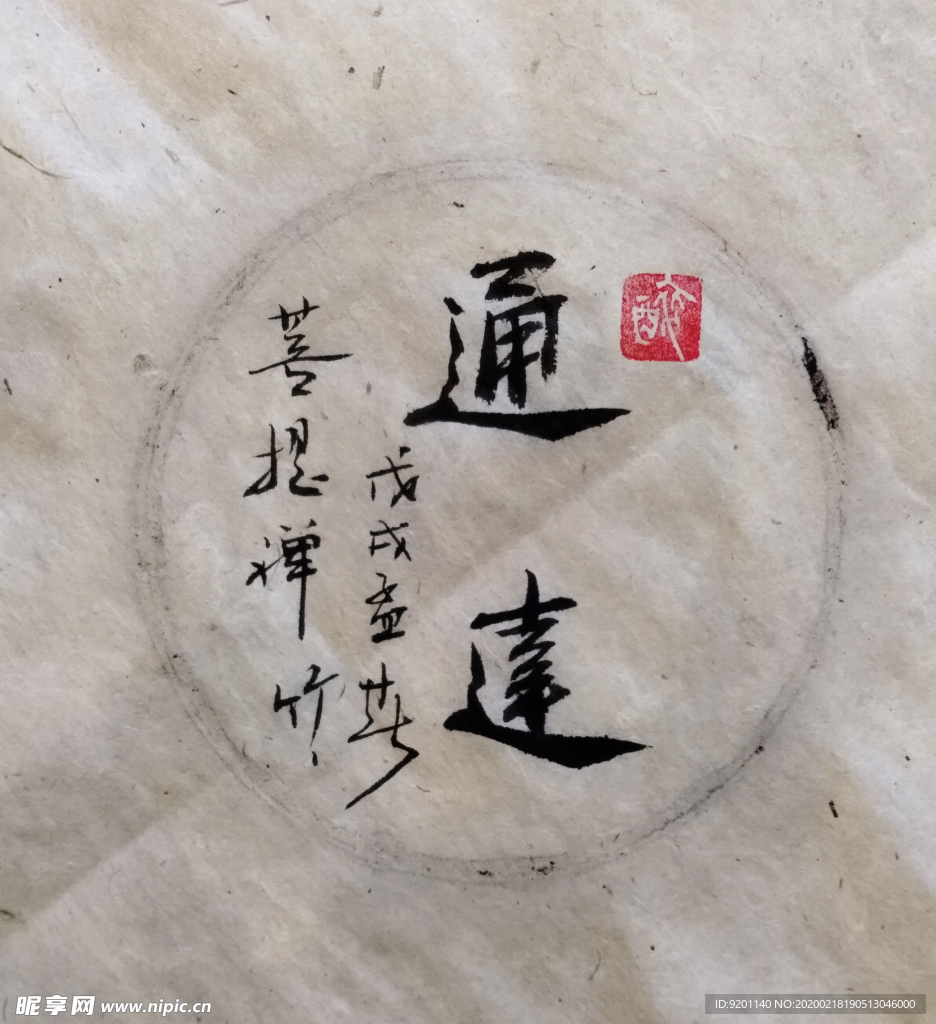 通達
戊戌孟
菩提禅竹
昵享网 www.nipic.cn
ID:9201140 NO:20200218190513046000